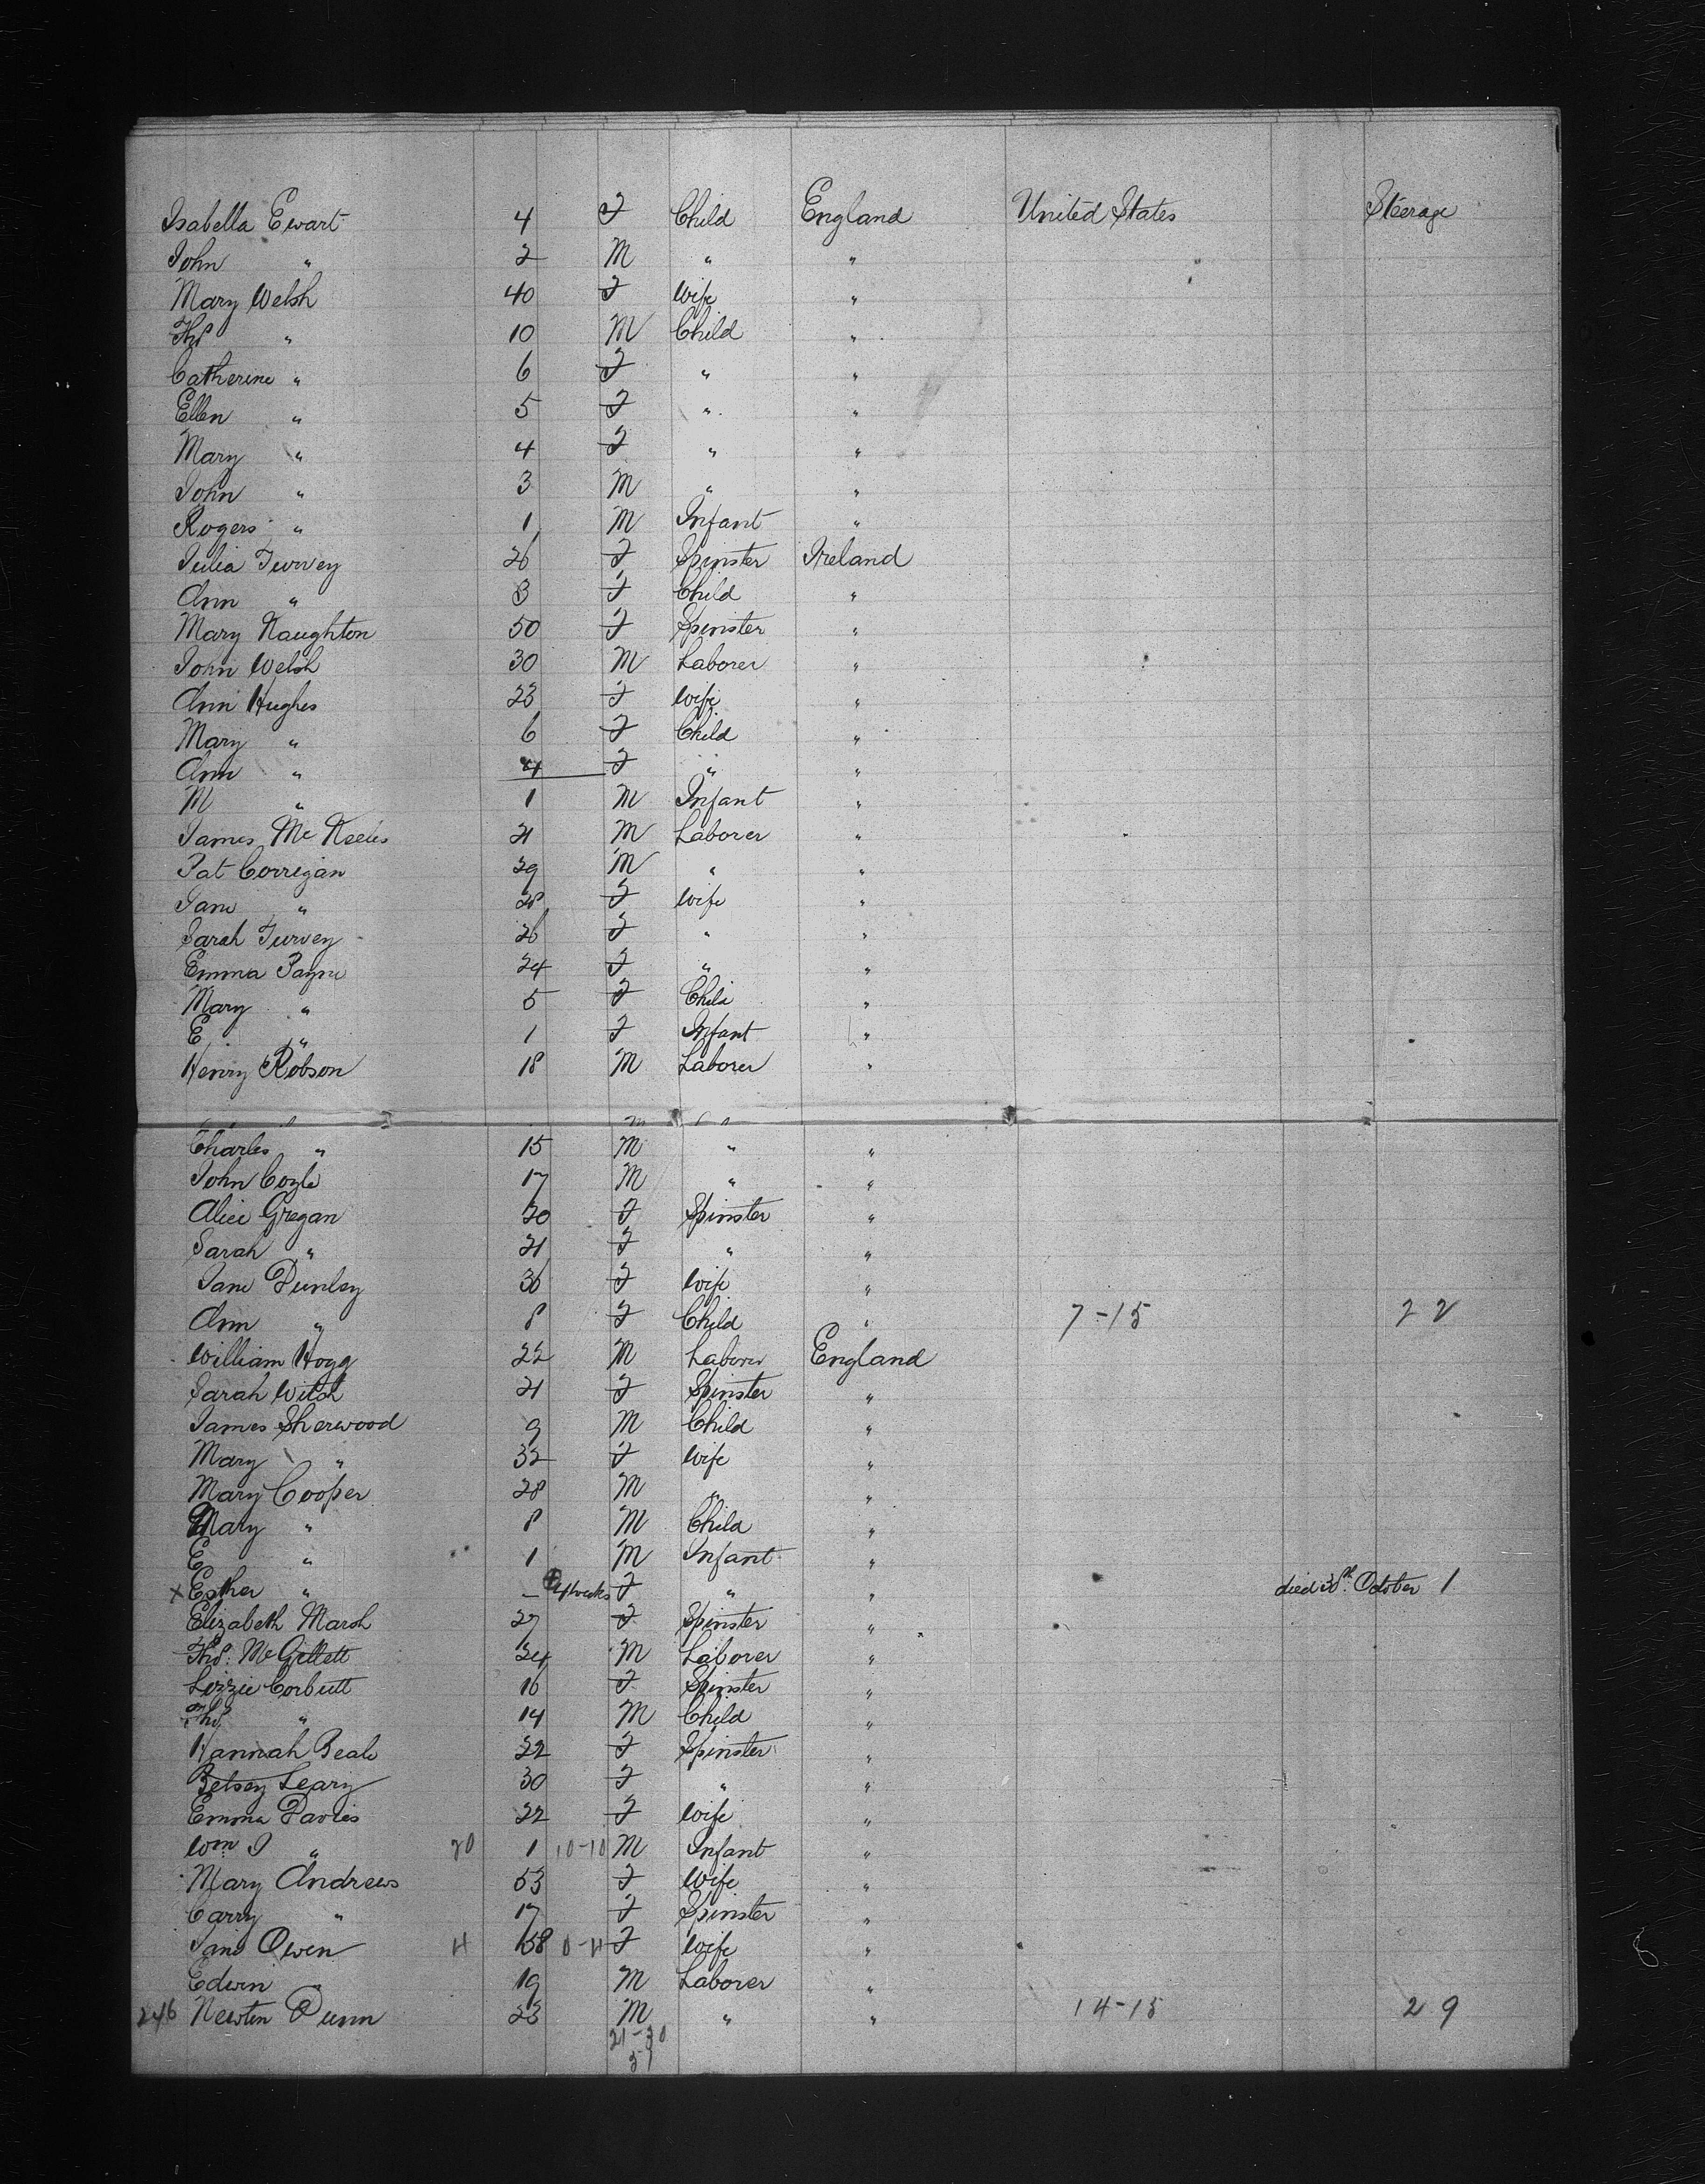 Isabella Ewart 4 F Child England United States Steerage
John " 2 M " "
Mary Welsh 40 F Wife "
Thos " 10 M Child "
Catherine " 6 F " "
Ellen " 5 F " "
Mary " 4 F " "
John " 3 M " "
Rogers " 1 M Infant "
Julia Turvey 26 F Spinster Ireland
Ann " 3 F Child "
Mary Naughton 50 F Spinster "
John Welsh 30 M Laborer "
Ann Hughes 23 F Wife "
Mary " 6 F Child "
Ann " 4 F " "
M " 1 M Infant "
James 21 M Laborer "
Pat Corrigan 29 M " "
Jane " 28 F Wife "
Sarah Turvey 26 F " "
Emma Payne 24 F " "
Mary " 5 F Child "
E " 1 F Infant "
Henry Robson 18 M Laborer "
Charles " 15 M " "
John Coyle 17 M " "
Alice Gregan 20 F Spinster "
Sarah " 21 F " "
Jane Dunley 36 F Wife "
Ann " 8 F Child " 7-15 22
William Hogg 22 M Laborer England
Sarah 21 F Spinster "
James Sherwood 9 M Child "
Mary " 32 F Wife "
Mary Cooper 28 M " "
Mary " 8 M Child "
E " 1 M Infant "
x Esther " - 4 weeks F " " died 30th October 1
Elizabeth Marsh 27 F Spinster "
Thos. McGillett 24 M Laborer "
Lizzie Corbutt 16 F Spinster "
Thos " 14 M Child "
Hannah Beale 22 F Spinster "
Betsey Leary 30 F " "
Emma Davies 22 F Wife "
Wm J " 20 1 10-10 M Infant "
Mary Andrews 53 F Wife "
Carry " 17 F Spinster "
Jane Owen 58 F Wife "
Edwin " 19 M Laborer "
246 Newton Dunn 23 M " " 14-15 29
21-30
51